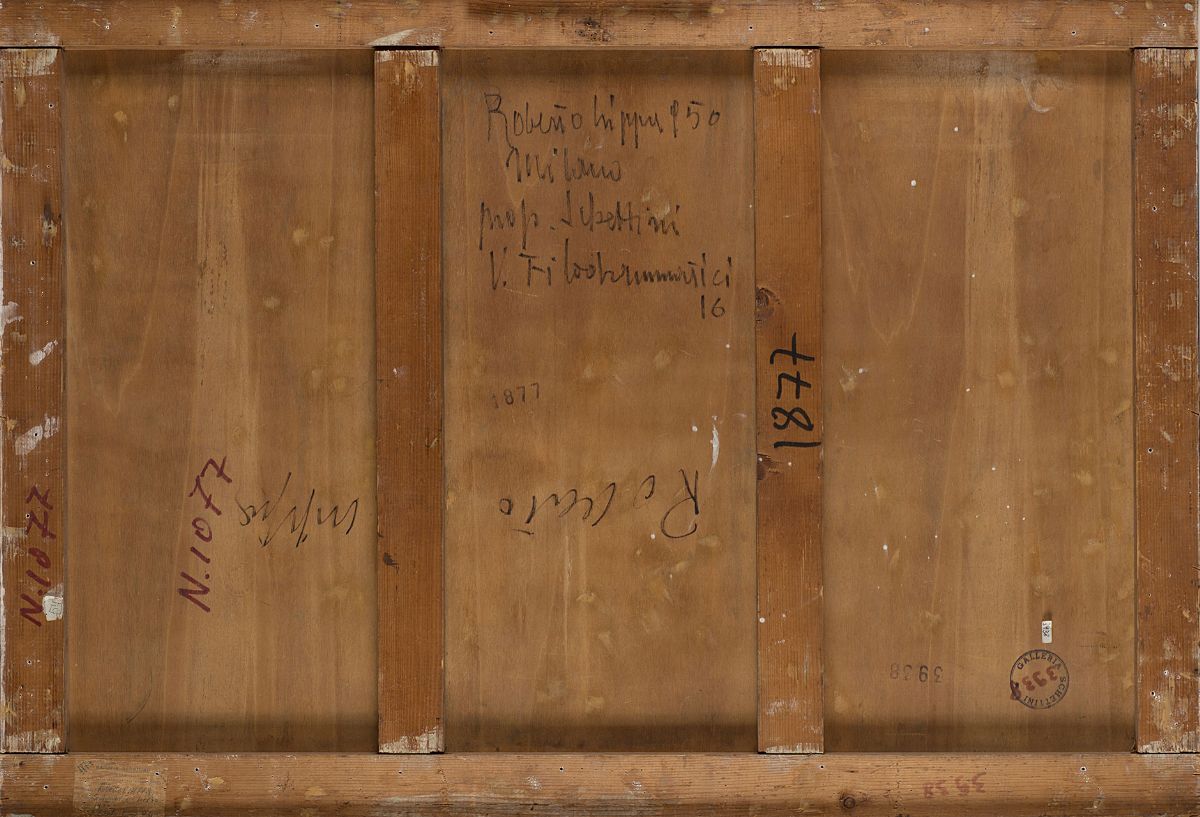 Roberto Crippa 950
Milano
prop. Schettini
V. Filodrammatici
16
1877
1877
Roberto
Crippa
N.1077
N.1077
3938
GALLERIA SCHETTINI
3938
3938